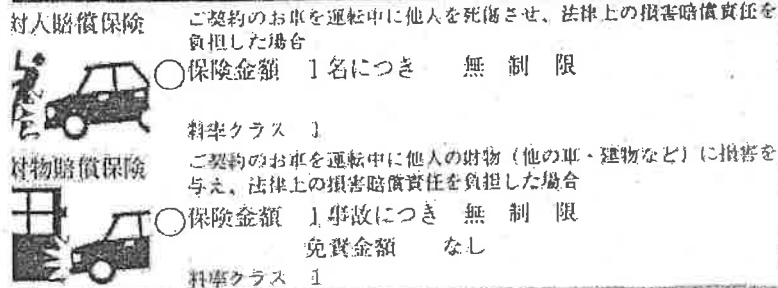 対人賠償保険
ご契約のお車を運転中に他人を死傷させ、法律上の損害賠償責任を
負担した場合
○保険金額 1名につき 無制限
料率クラス 1
対物賠償保険
ご契約のお車を運転中に他人の財物（他の車・建物など）に損害を
与え、法律上の損害賠償責任を負担した場合
○保険金額 1事故につき 無制限
免責金額 なし
料率クラス 1